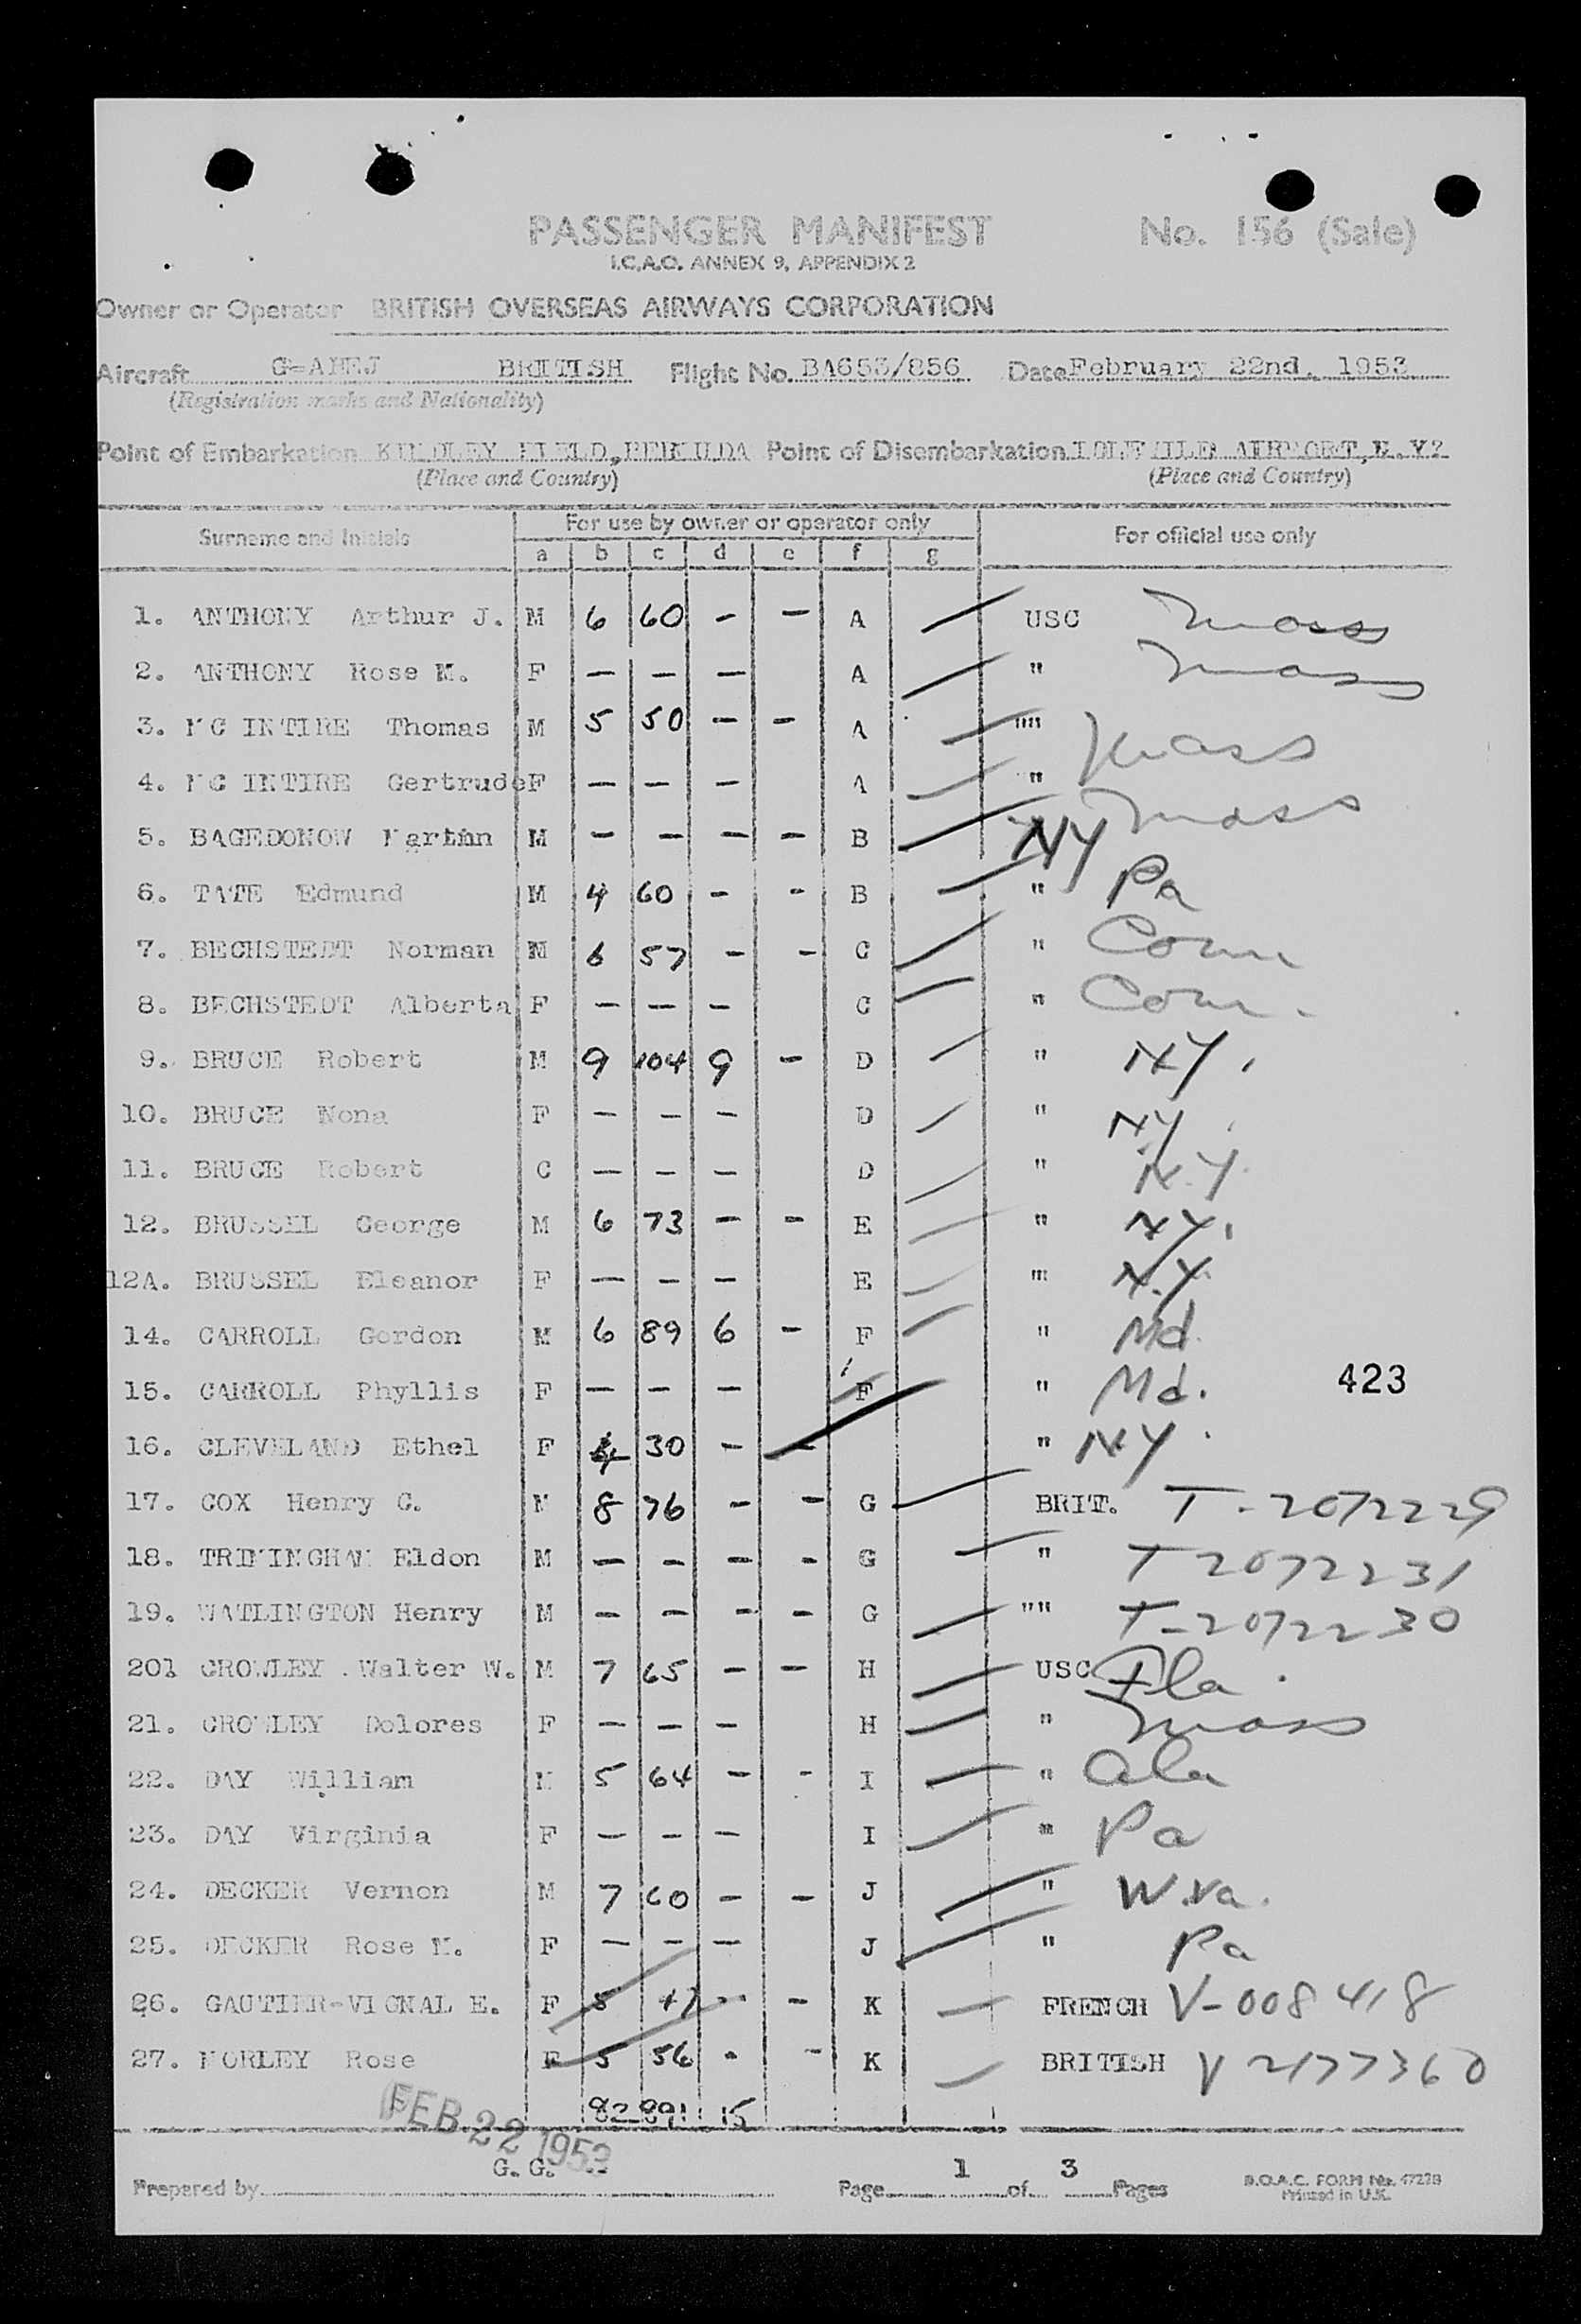 PASSENGER MANIFEST No. 156 (Sale)
I.C.A.O. ANNEX 9, APPENDIX 2
Owner or Operator BRITISH OVERSEAS AIRWAYS CORPORATION
Aircraft BRITISH Flight No. BA653/856 Date February 22nd. 1953
(Registration marks and Nationality)
Point of Embarkation KINDLEY FIELD, BERMUDA Point of Disembarkation IDLEWILD AIRPORT, N.Y?
(Place and Country) (Place and Country)
Surname and Initials For use by owner or operator only For official use only
a b c d e f g
1. ANTHONY Arthur J. M 6 60 - - A USC Mass
2. ANTHONY Rose M. F - - - A " Mass
3. MC INTIRE Thomas M 5 50 - - A "" Mass
4. MC INTIRE Gertrude F - - - A " Mass
5. BAGEDONOW Martin M - - - - B NY
6. TATE Edmund M 4 60 - - B " Pa
7. BECHSTEDT Norman M 6 57 - - C " Conn
8. BECHSTEDT Alberta F - - - C " Conn.
9. BRUCE Robert M 9 104 9 - D " NY.
10. BRUCE Nona F - - - D " NY
11. BRUCE Robert C - - - D " N.Y.
12. BRUSSEL George M 6 73 - - E " NY.
12A. BRUSSEL Eleanor F - - - E " N.Y.
14. CARROLL Gordon M 6 89 6 - F " Md.
15. CARROLL Phyllis F - - - F " Md. 423
16. CLEVELAND Ethel F 4 30 - - " NY.
17. COX Henry C. M 8 76 - - G BRIT. T-2072229
18. TRIMINGHAM Eldon M - - - - G " T 2072231
19. WATLINGTON Henry M - - - - G "" T-2072230
201 CROWLEY Walter W. M 7 65 - - H USC Fla.
21. CROWLEY Dolores F - - - H " Mass
22. DAY William M 5 64 - - I " Ala
23. DAY Virginia F - - - I " Pa
24. DECKER Vernon M 7 60 - - J " W.Va.
25. DECKER Rose M. F - - - J " Pa
26. GAUTIER-VIGNAL E. F 5 47 - - K FRENCH V-008418
27. MORLEY Rose F 5 56 - - K BRITISH V 2177360
82 891 15
FEB 22 1953
G. G.
Prepared by Page 1 of 3 Pages
B.O.A.C. FORM No.
Printed in U.K.